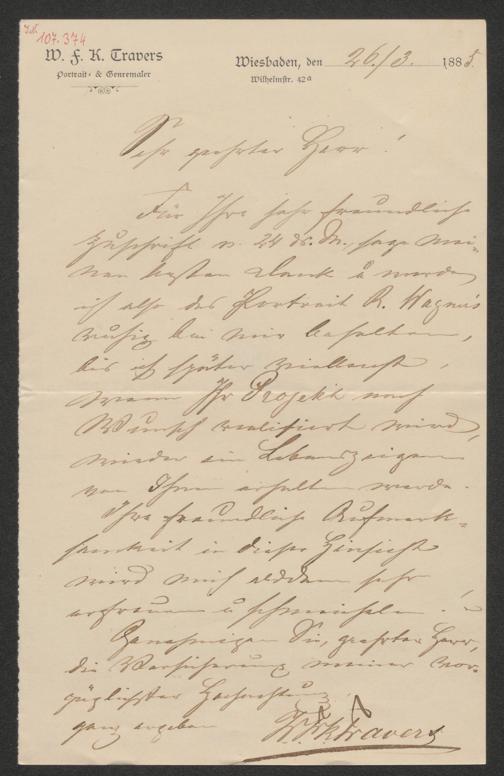 I.N. 107.374
W. F. K. Travers
Portrait- & Genremaler
Wiesbaden, den 26./3. 1885.
Wilhelmstr. 42a
Sehr geehrter Herr!
Für Ihre sehr freundliche
Zuschrift v. 24 ds. M., sage mei-
nen besten Dank u werde
ich also das Portrait R. Wagner's
ruhig bei mir behalten,
bis ich später vielleicht,
wenn Ihr Projekt nach
Wunsch realisiert wird,
wieder ein Lebenszeichen
von Ihnen erhalten werde.
Ihre freundliche Aufmerk-
samkeit in dieser Hinsicht
wird mich alsdann sehr
erfreuen u schmeicheln.
Genehmigen Sie, geehrter Herr,
die Versicherung meiner vor-
züglichster Hochachtung
ganz ergeben
W.F.K. Travers